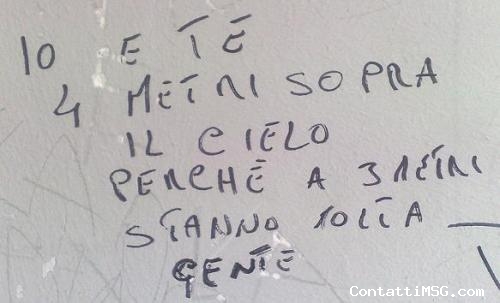 IO E TE
4 METRI SOPRA
IL CIELO
PERCHÈ A 3 METRI
STANNO TOLTA
GENTE
ContattiMSG.com